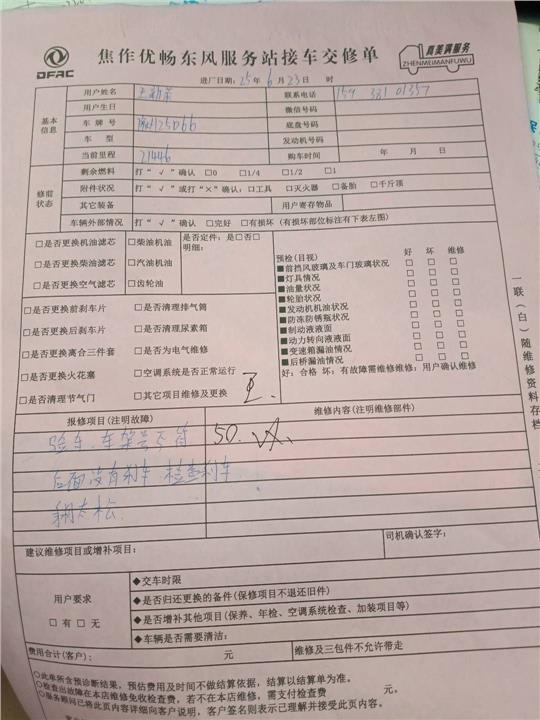 DFAC
焦作优畅东风服务站接车交修单
真美满服务
ZHENMEIMANFUWU
进厂日期：25年6月23日 时
基本信息
用户姓名
联系电话 159 331 01357
用户生日
微信号码
车牌号
底盘号码
车型
发动机号码
当前里程 21446
购车时间 年 月 日
修前状态
剩余燃料 打“√”确认 □0 □1/4 □1/2 □1
附件状况 打“√”或打“×”确认：□工具 □灭火器 □备胎 □千斤顶
其它装备
用户寄存物品
车辆外部情况 打“√”确认 □完好 □有损坏（有损坏部位标注有下表左图）
□是否更换机油滤芯 □柴油机油 是否定件：是□否□
明细：
□是否更换柴油滤芯 □汽油机油
□是否更换空气滤芯 □齿轮油
□是否更换前刹车片 □是否清理排气筒
□是否更换后刹车片 □是否清理尿素箱
□是否更换离合三件套 □是否为电气维修
□是否更换火花塞 □空调系统是否正常运行
□是否清理节气门 □其它项目维修及更换
预检(目视) 好 坏 维修
■前挡风玻璃及车门玻璃状况 □ □ □
■灯具情况 □ □ □
■油量状况 □ □ □
■轮胎状况 □ □ □
■发动机机油状况 □ □ □
■防冻防锈瓶状况 □ □ □
■制动液液面 □ □ □
■动力转向液液面 □ □ □
■变速箱漏油情况 □ □ □
■后桥漏油情况 □ □ □
好：合格 坏：有故障需维修维修：用户确认维修
报修项目(注明故障)
维修内容(注明维修部件)
验车.车架号不清
50.
后面没有刹车 检查刹车
太松.
建议维修项目或增补项目：
司机确认签字：
用户要求
□有 □无
◆交车时限
◆是否归还更换的备件(保修项目不退还旧件)
◆是否增补其他项目(保养、年检、空调系统检查、加装项目等)
◆车辆是否需要清洁：
费用合计(客户)： 元
维修及三包件不允许带走
○此单所含预诊断结果，预估费用及时间不做结算依据，结算以结算单为准。
○检查出故障在本店维修免收检查费，若不在本店维修，需支付检查费 元。
○服务顾问已将此页内容详细向客户说明，客户签名则表示已理解并接受此页内容。
一联(白)随维修资料存档